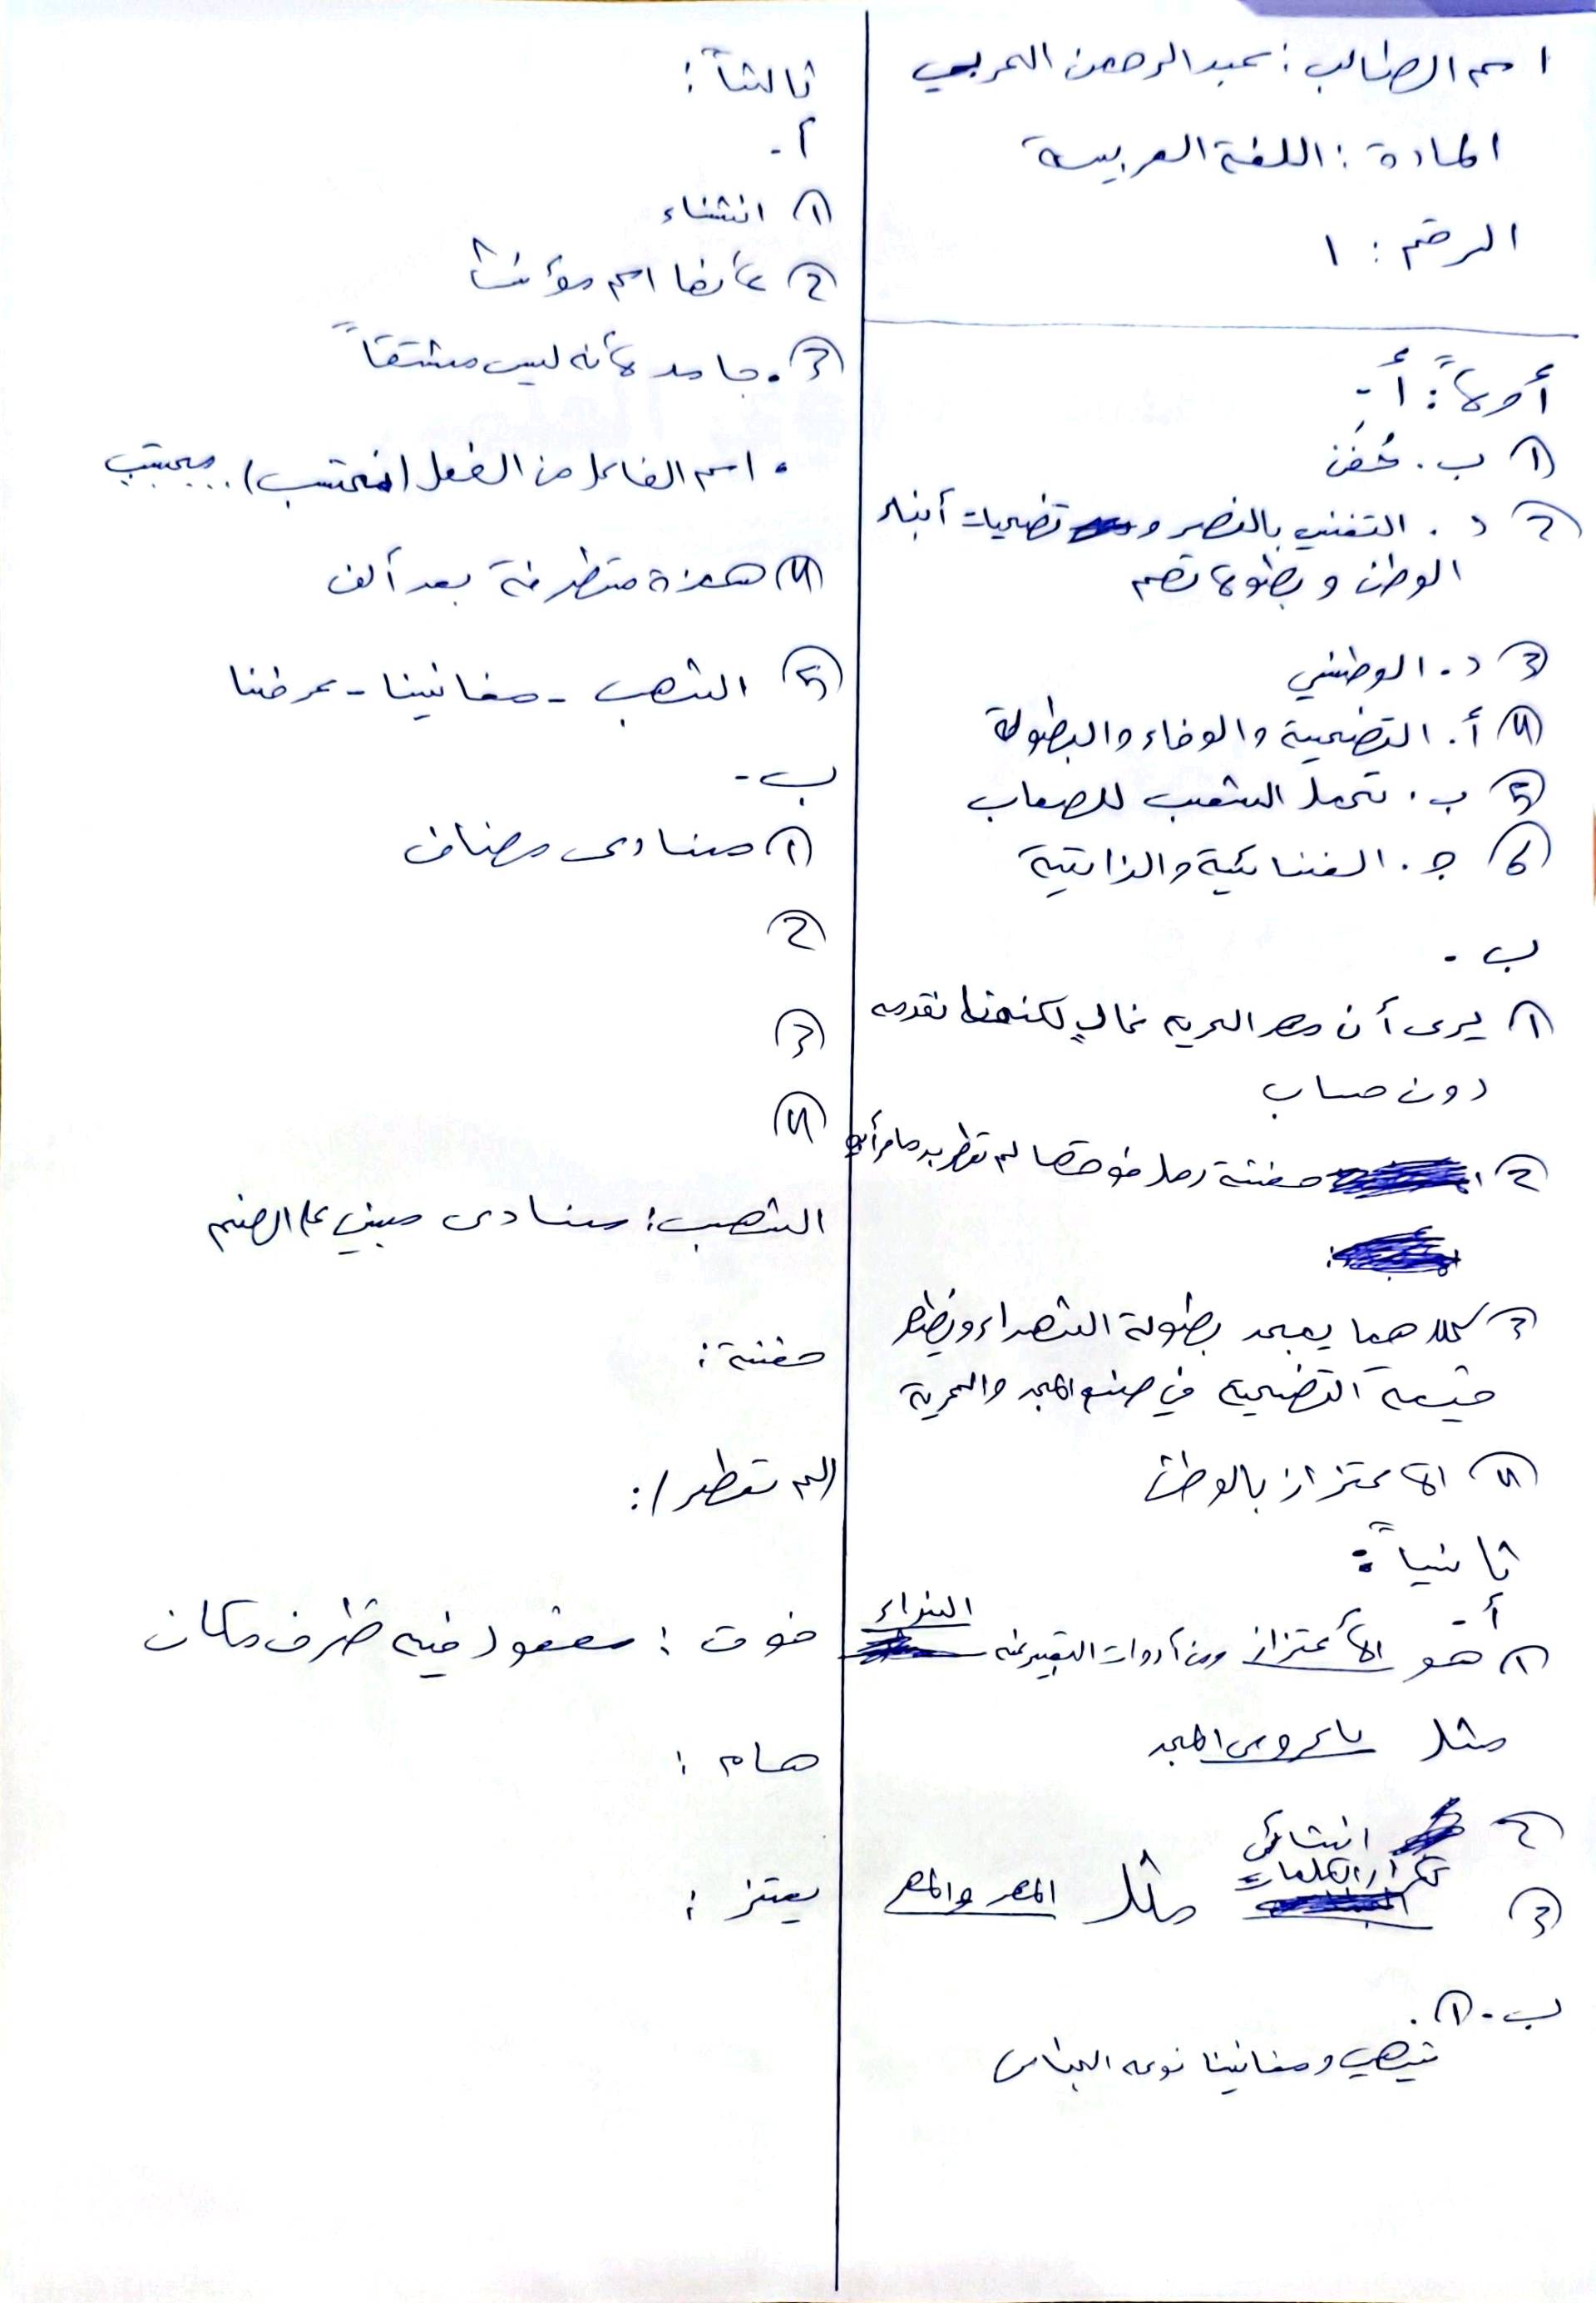 اسم الطالب : عبد الرحمن الحربي
المادة : اللغة العربية
الرقم : ١
أولاً : أ -
① ب . حُفَن
② د . التغني بالنصر و تضحيات أبناء
الوطن و بطولاتهم
③ د . الوطني
④ أ . التضحية والوفاء والبطولة
⑤ ب . تحمل الشعب للصعاب
⑥ ج . الغنائية والذاتية
ب -
① يرى أن مهر الحرية غالٍ لكننا نقدمه
دون حساب
② حفنة رمل فوقها لم تعطر بدما
③ كلاهما يمجد بطولة الشهداء ويظهر
قيمة التضحية في صنع المجد والحرية
④ الاعتزاز بالوطن
ثانياً :
أ -
① هو الأعتزاز ومن أدوات التعبير عنه النداء
مثل يا عروس المجد
② انشائي
③ تكرار الكلمات مثل المهر والمهر
ب - ① .
تيهي و مغانينا نوعه الجناس
ثالثاً :
أ -
① انثناء
② لأنها اسم مؤنث
③ . جامد لأنه ليس مشتقاً
. اسم الفاعل من الفعل (نحتسب)
④ همزة متطرفة بعد ألف
⑤ الشهب - مغانينا - عرضنا
ب -
① منادى مضاف
②
③
④
الشهب : منادى مبني على الضم
حفنة :
(لم تعطر) :
فوق : مفعول فيه ظرف مكان
هام :
يعتز :